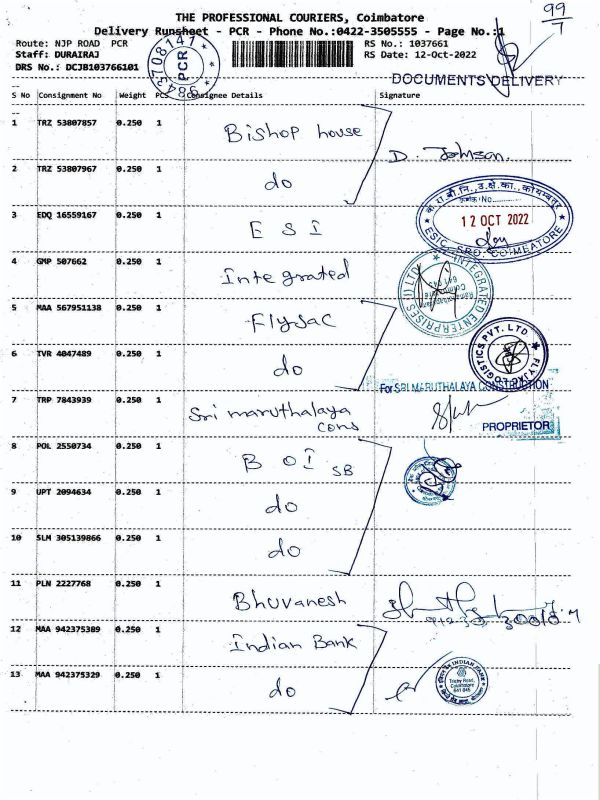 99/7
THE PROFESSIONAL COURIERS, Coimbatore
Delivery Runsheet - PCR - Phone No.:0422-3505555 - Page No.:1
Route: NJP ROAD PCR
RS No.: 1037661
Staff: DURAIRAJ
RS Date: 12-Oct-2022
DRS No.: DCJB103766101
PCR
DOCUMENTS DELIVERY
S No Consignment No Weight PCS Consignee Details Signature
1 TRZ 53807857 0.250 1 Bishop house
D. Johnson.
2 TRZ 53807967 0.250 1 do
3 EDQ 16559167 0.250 1 E S I
12 OCT 2022
ESIC, SRO, COIMBATORE
4 GMP 507662 0.250 1 Integrated
INTEGRATED ENTERPRISES (I) LTD
5 MAA 567951138 0.250 1 Flyjac
6 TVR 4047489 0.250 1 do
FLYJAC LOGISTICS PVT. LTD
For SRI MARUTHALAYA CONSTRUCTION
7 TRP 7843939 0.250 1 Sri maruthalaya
cons
PROPRIETOR
8 POL 2550734 0.250 1 B O I SB
9 UPT 2094634 0.250 1 do
10 SLM 305139866 0.250 1 do
11 PLN 2227768 0.250 1 Bhuvanesh
12 MAA 942375389 0.250 1 Indian Bank
13 MAA 942375329 0.250 1 do
INDIAN BANK
Trichy Road,
Coimbatore
641 045